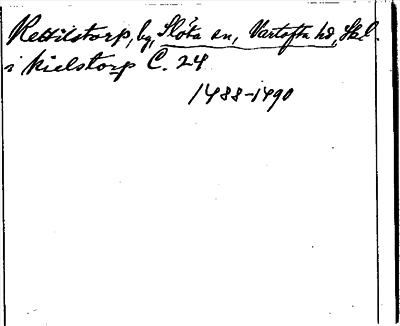 Kettilstorp, by, Slöta sn, Vartofta hd, Skl.
i kielstorp C. 24
1488-1490